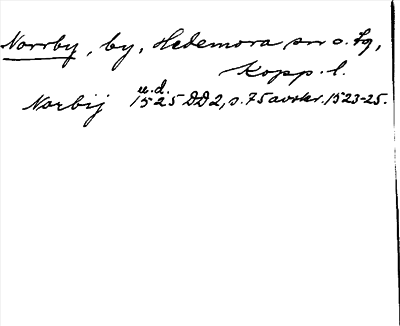 Norrby, by, Hedemora sn o. tg,
Kopp. l.
Norbij u.d. 1525 DD2, s. 75 avskr. 1523-25.